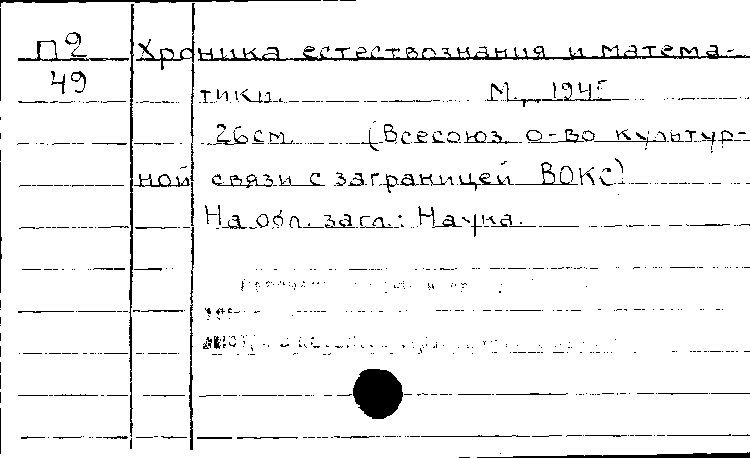 П2 Хроника естествознания и матема-
49 тики. М., 1945
26см. (Всесоюз. о-во культур-
ной связи с заграницей ВОКС)
На обл. загл.: Наука.